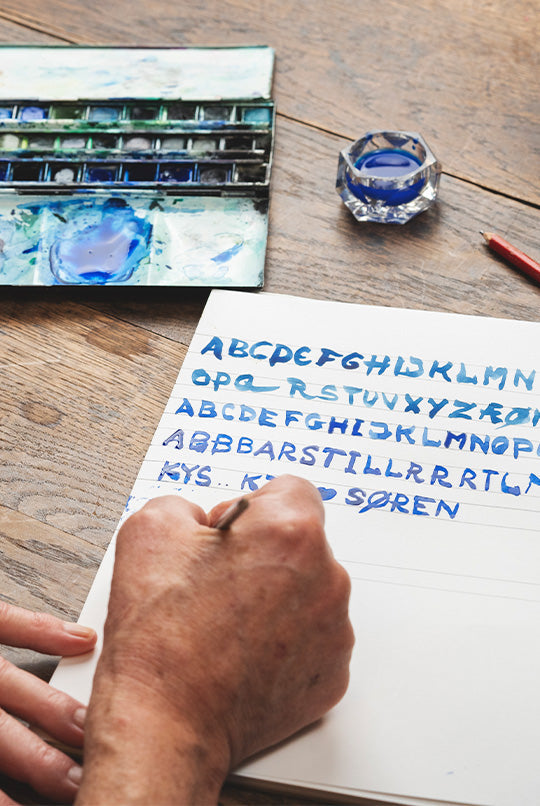 ABCDEFGHIJKLMN
OPQ RSTUVXYZÆØ
ABCDEFGHIJKLMNOP
ABBBARSTILLRRRTLN
KYS.. K ♥ SØREN